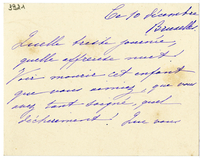 3921
Ce 10 décembre
Bruxelles
Quelle triste journée,
quelle affreuse nuit!
Voir mourir cet enfant
que vous aimez, que vous
avez tant soigné, quel
déchirement! Que vous